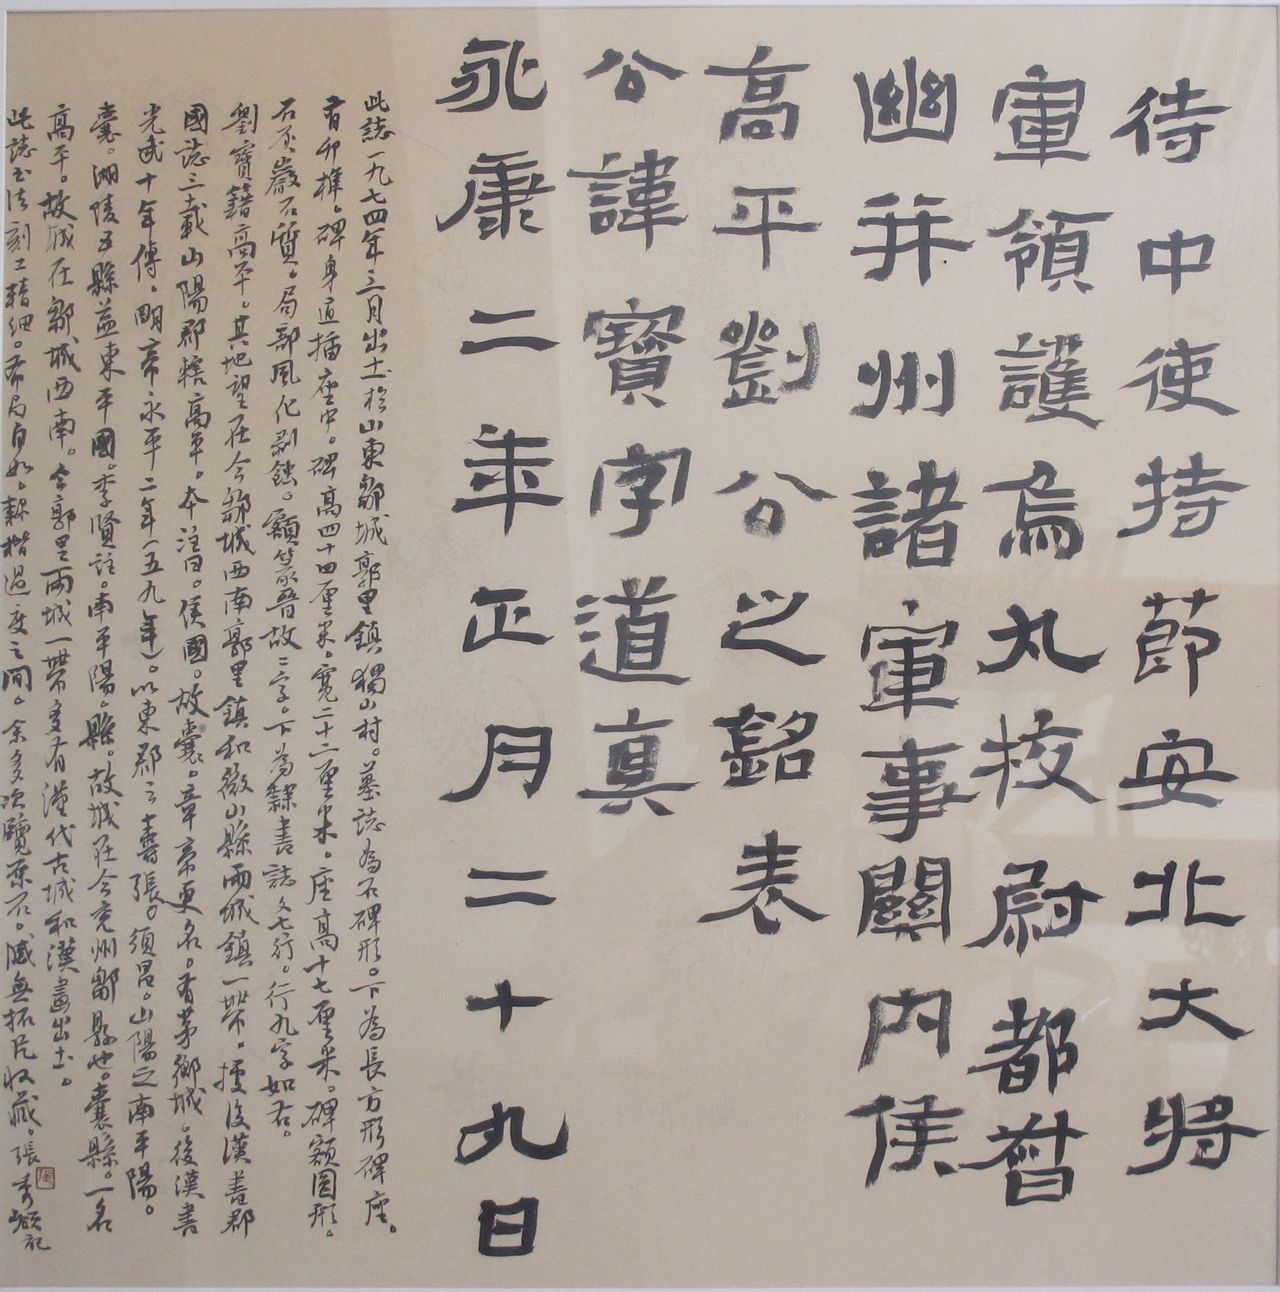 侍中使持節安北大將
軍領護烏丸校尉都督
幽并州諸軍事關內侯
高平劉公之銘表
公諱寶字道真
永康二年正月二十九日
此誌一九七四年三月出土於山東鄒城郭里鎮獨山村。墓誌為石碑形。下為長方形碑座。
有卯榫。碑身直插座中。碑高四十四厘米。寬二十二厘米。座高十七厘米。碑額圓形。
石灰巖石質。局部風化剝蝕。額篆晉故二字。下為隸書誌文七行。行九字如右。
劉寶籍高平。其地望在今鄒城西南郭里鎮和微山縣兩城鎮一帶。據後漢書郡
國誌三載山陽郡轄高平。本注曰。侯國。故橐。章帝更名。有茅鄉城。後漢書
光武十年傳。明帝永平二年（五九年）。以東郡之壽張。須昌。山陽之南平陽。
橐。湖陵五縣益東平國。李賢註。南平陽。縣。故城在今兗州鄒縣也。橐縣。一名
高平。故城在鄒城西南。今郭里兩城一帶多有漢代古城和漢畫出土。
此誌書法刻工精細。布局自如。隸楷過度之間。余多次覽原石。感無拓片收藏。張